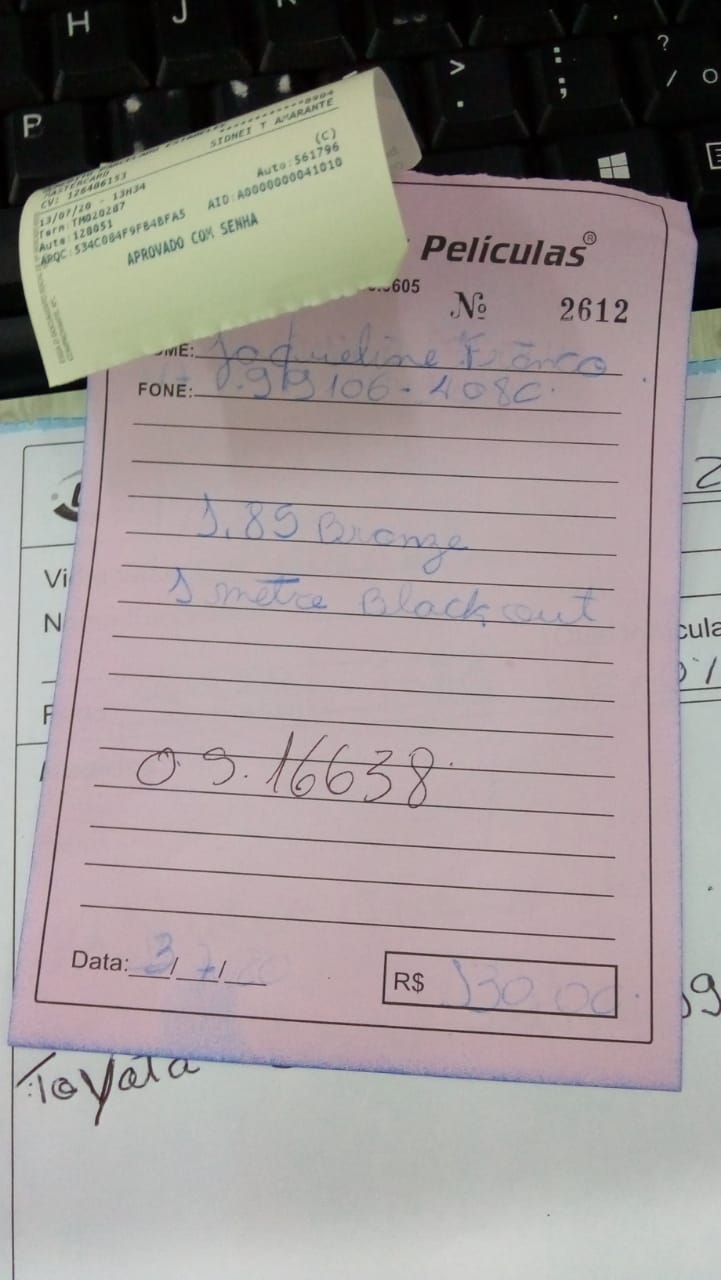 H J
P
> .
: ;
? /
MASTERCARD
SIDNEI T AMARANTE
CV: 128406153 (C)
13/07/20 - 13H34 Auto:561796
Term:TM020287 AID:A0000000041010
Auto: 128051
ARQC:534C084F9FB4BFA5
APROVADO COM SENHA
Películas®
.3605
Nº 2612
OME: Jaqueline Franco
FONE: 9.99106-4080
1.85 Bronze
1 metro Black out
Vi
N
cula
O S. 16638
Data: 3/7/20 R$ 130,00
Toyota